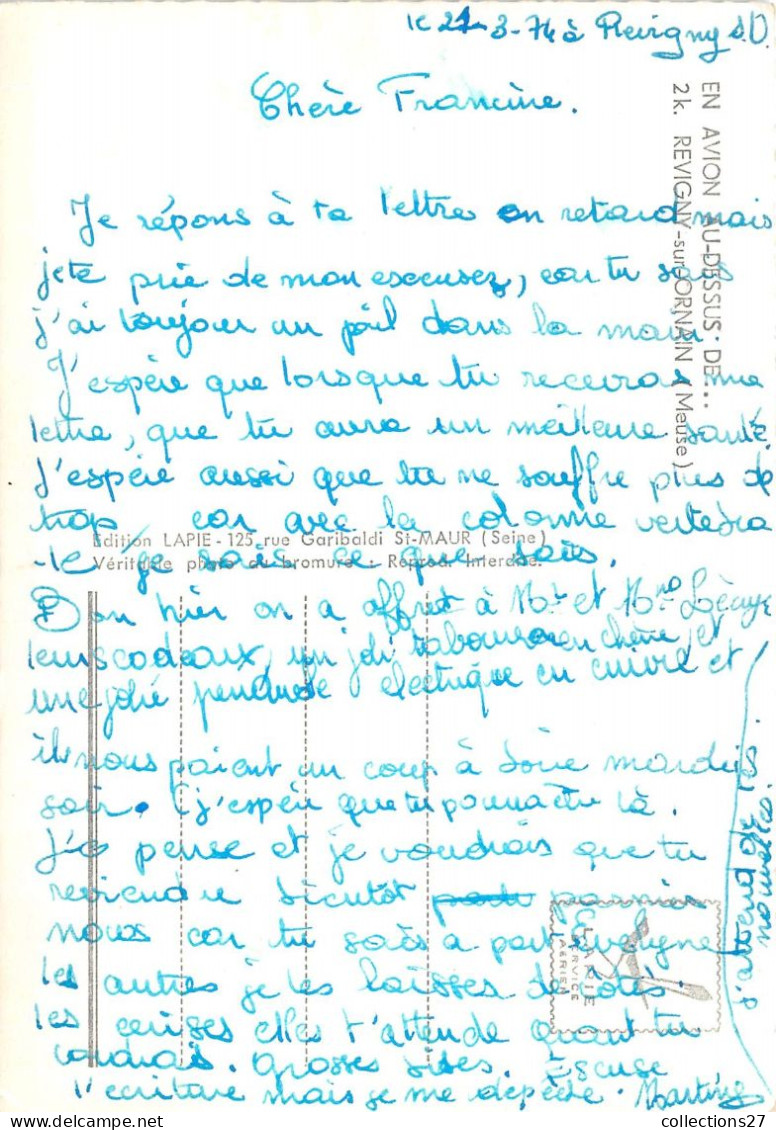 le 21-3-74 à Revigny s.O
Chère Francine.
Je répons à ta lettre en retard mais
je te prie de mon escusez, car tu sais
j'ai toujour un poil dans la main
J'espère que lorsque tu receivras ma
lettre, que tu aura un meilleure santé.
J'espère aussi que tu ne souffre plus de
trop car avec la colonne vertebra
-le je sais ce que sais.
Bon hier on a offret à Mr et Mme
leurs cadeaux, un joli tabouret en chêne et
une jolie pendule électrique en cuivre et
ils nous paient un coup à boire mardi
soir. (j'espère que tu pourra être là.
J'y pense et je voudrais que tu
reviendre bientôt parmies
nous car tu sais à part Evelyne
les autres je les laisses de côtés.
les cerises elles t'attende quant tu
voudrais. Grosses bises. Escuse
l'ecriture mais je me depèche. Martine
j'attend de tes
nouvelles.
EN AVION AU-DESSUS DE...
2k. REVIGNY-sur-ORNAIN (Meuse)
Edition LAPIE - 125, rue Garibaldi St-MAUR (Seine)
Véritable photo au bromure - Reprod. Interdite.
LAPIE
SERVICE
AÉRIEN
collections27